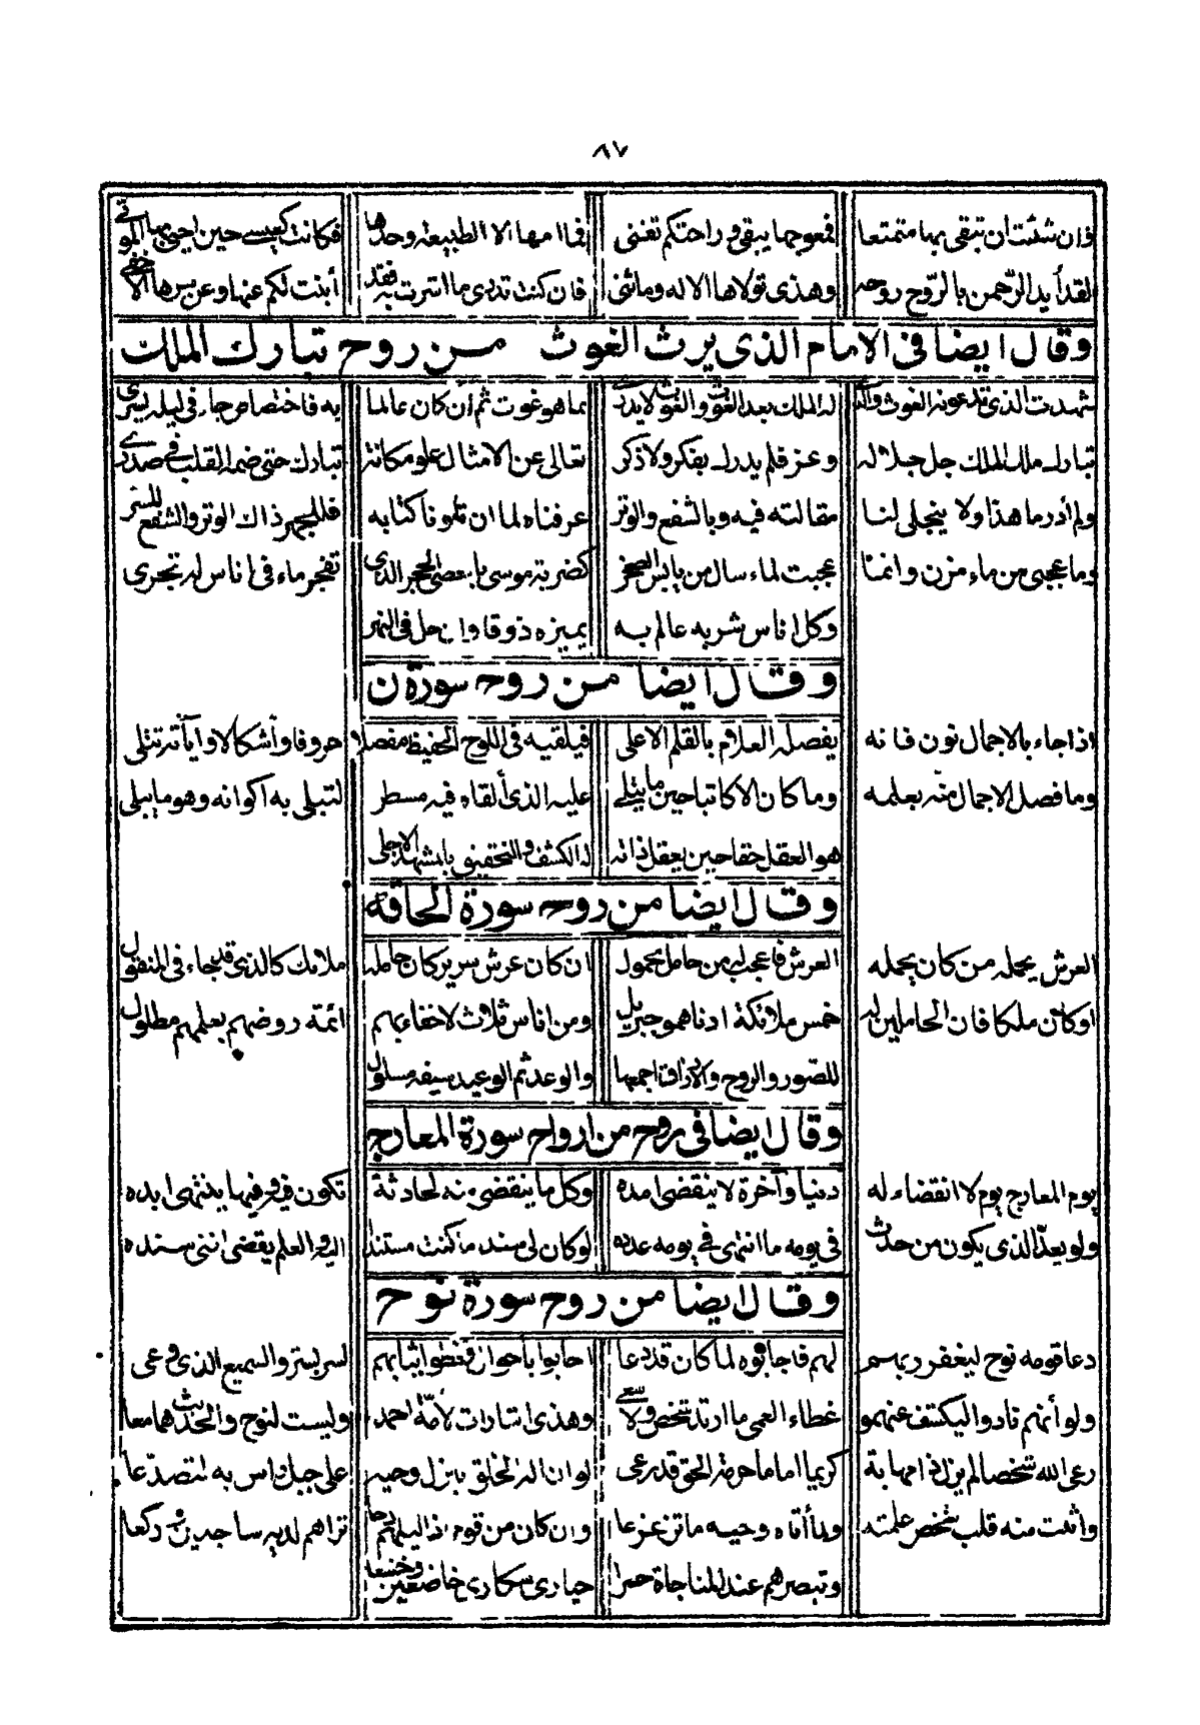 ٨٧
وان شئت ان تبقى بها متمتعا فعوجا يبقى وراحتكم تفنى فما امها الا الطبيعة وحدها فكانت كعيسى حين احيى بها الموتى
لقد أيد الرّحمن بالرّوح روحه وهذى تولاها الاله وماثنى فان كنت تدرى ما اشرت به فقد أبنت لكم عنها وعن سرها الأخفى
وقال ايضا فى الامام الذى يرث الغوث من روح تبارك الملك
شهدت الذى تدعونه الغوث والذى له الملك بعد الغوث والغوث لا يدرى بما هو غوث ثم أن كان عالما به فاختصاص جاء فى ليلة يسرى
تبارك ملك الملك جل جلاله وعز فلم يدرك بفكر ولا ذكر تعالى عن الامثال علو مكانة تبارك حتى ضمه القلب فى صدرى
ولم أدر ما هذا ولا ينجلى لنا مقالته فيه وبالشفع والوتر عرفناه لما ان تلونا كتابه فللجهر ذاك الوتر والشفع للسر
وما عجبى من ماء مزن وانما عجبت لماء سال من يابس الصخر كضربة موسى بالعصى الحجر الذى تفجر ماء فى اناس له تجرى
وكل اناس شربه عالم به يميزه ذوقا وان حل فى النهر
وقال ايضا من روح سورة ن
اذا جاء بالاجمال نون فانه يفصله العلام بالقلم الاعلى فيلقيه فى اللوح الحفيظ مفصلا حروفا وأشكالا وآياته تتلى
وما فصل الاجمال منه بعلمه وما كان الا كاتبا حين ما يتلى عليه الذى ألقاه فيه مسطر لتبلى به اكوانه وهو ما يبلى
هو العقل حقا حين يعقل ذاته له الكشف والتحقيق بالمشهد الاجلى
وقال ايضا من روح سورة الحاقة
العرش يحمله من كان يحمله العرش فاعجب له من حامل محمول ان كان عرش سرير كان حامله ملائك كالذى قد جاء فى المنقول
او كان ملكا فان الحاملين له خمس ملائكة ادناهمو جبريل ومن اناس ثلاث لا خفاء بهم ائمة روضهم بعلمهم مطلول
للصّور والروح والارزاق اجمعها والوعد ثم الوعيد سيفه مسلول
وقال ايضا فى روح من ارواح سورة المعارج
يوم المعارج يوم لا انقضاء له دنيا وآخرة لا ينقضى امده وكل ما ينقضى منه لحادثة تكون فيه وفيها ينتهى ابده
ولو يعدّ الذى يكون من حدث فى يومه ما انتهى فى يومه عدده لو كان لى سند ما كنت مستندا اليه والعلم يقضى اننى سنده
وقال ايضا من روح سورة نوح
دعا قومه نوح ليغفر ربهم لهم فاجابوه لما كان قد دعا اجابوا بأحوال فغطوا ثيابهم لسر بستر والسميع الذى وعى
ولو أنهم نادوا ليكشف عنهمو غطاء العمى ما ارتد شخص ولا سعى وهذى اشارات لأمة احمد وليست لنوح والحديث هما معا
رعى الله شخصا لم يزل ذا مهابة كريما اماما حرمة الحق قد رعى لو ان اله الخلق ينزل وحيه على جبل راس به لتصدّعا
واثبت منه قلب شخص علمته ولما أتاه وحيه ما تزعزعا وان كان من قوم اذا ليلهم دجا تراهم لديه ساجدين وركعا
وتبصرهم عند المناجاة حسرا حيارى سكارى خاضعين وخشعا